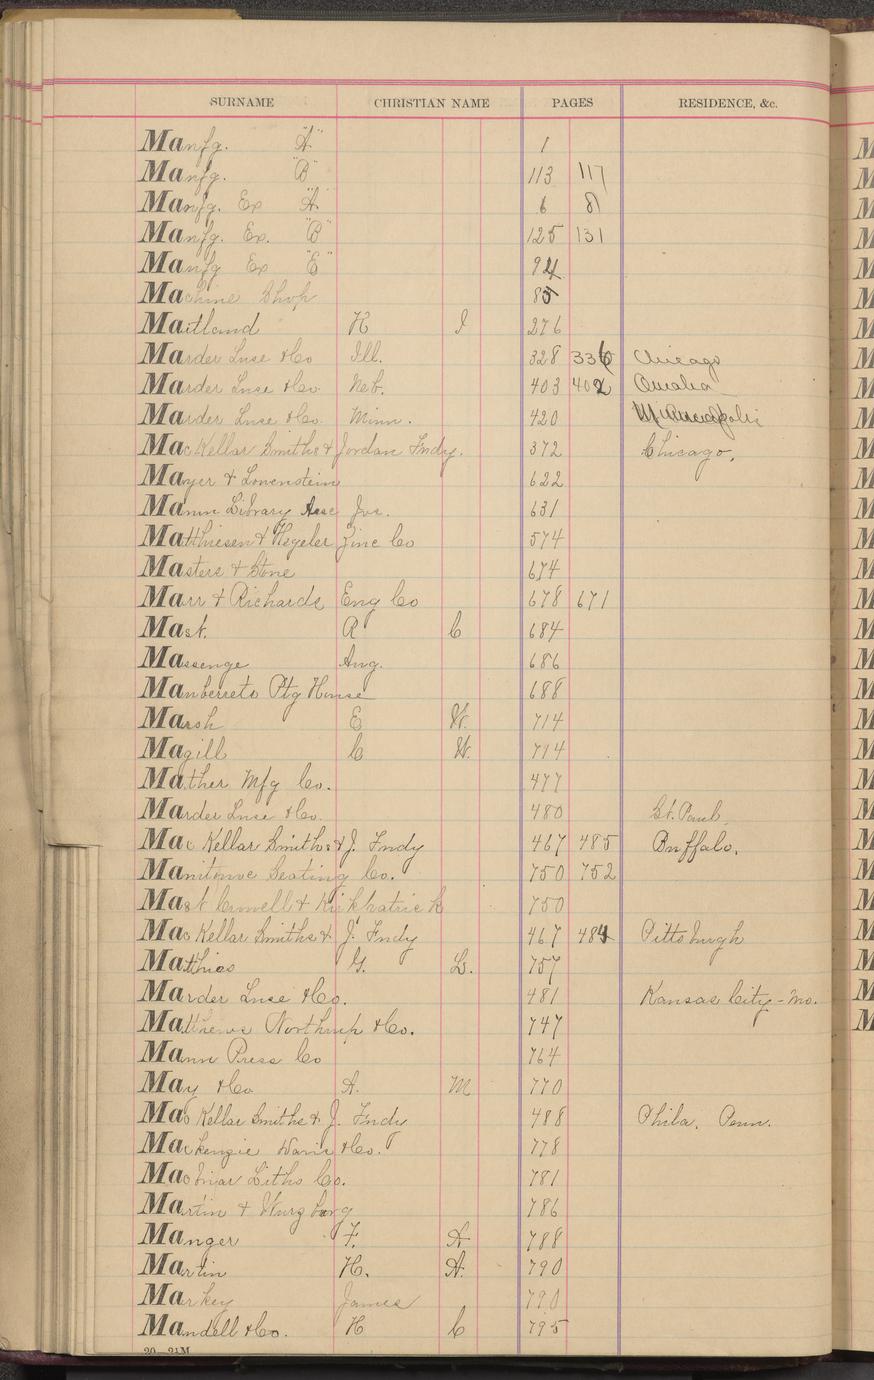 SURNAME CHRISTIAN NAME PAGES RESIDENCE, &c.
Manfg. "A" 1
Manfg. "B" 113 117
Manfg. Ex "A" 6 8
Manfg. Ex. "B" 125 131
Manfg Ex "E" 94
Machine Shop 85
Maitland H I 276
Marder Luse & Co Ill. 328 336 Chicago
Marder Luse & Co. Neb. 403 402 Omaha
Marder Luse & Co. Minn. 420 Minneapolis
MacKellar Smiths & Jordan Fndy. 372 Chicago,
Mayer & Lowenstein 622
Mann Library Assc 631
Matthiesen & Hegeler Zinc Co 574
Masters & Stone 674
Marr & Richards Eng Co 678 671
Mast. R C 684
Massenge Aug. 686
Ptg House 688
Marsh E W. 714
Magill C W. 714
Mather Mfg Co. 477
Marder Luse & Co. 480 St. Paul,
Mac Kellar Smiths & J. Fndy 467 485 Buffalo,
Manitowoc Seating Co. 750 752
Mast Crowell & Kirkpatrick 750
Mac Kellar Smiths & J. Fndy 467 484 Pittsburgh
Matthias G. L. 757
Marder Luse & Co. 481 Kansas City - Mo.
Matthews Northrup & Co. 747
Mann Press Co 764
May & Co A. M 770
Mac Kellar Smiths & J. Fndy 488 Phila, Penn.
Mackenzie Davis & Co. 778
Litho Co. 781
Martin & Wurzburg 786
Manger F. A 788
Martin H. A. 790
Markey James 790
Mandell & Co. H C 795
20—21M